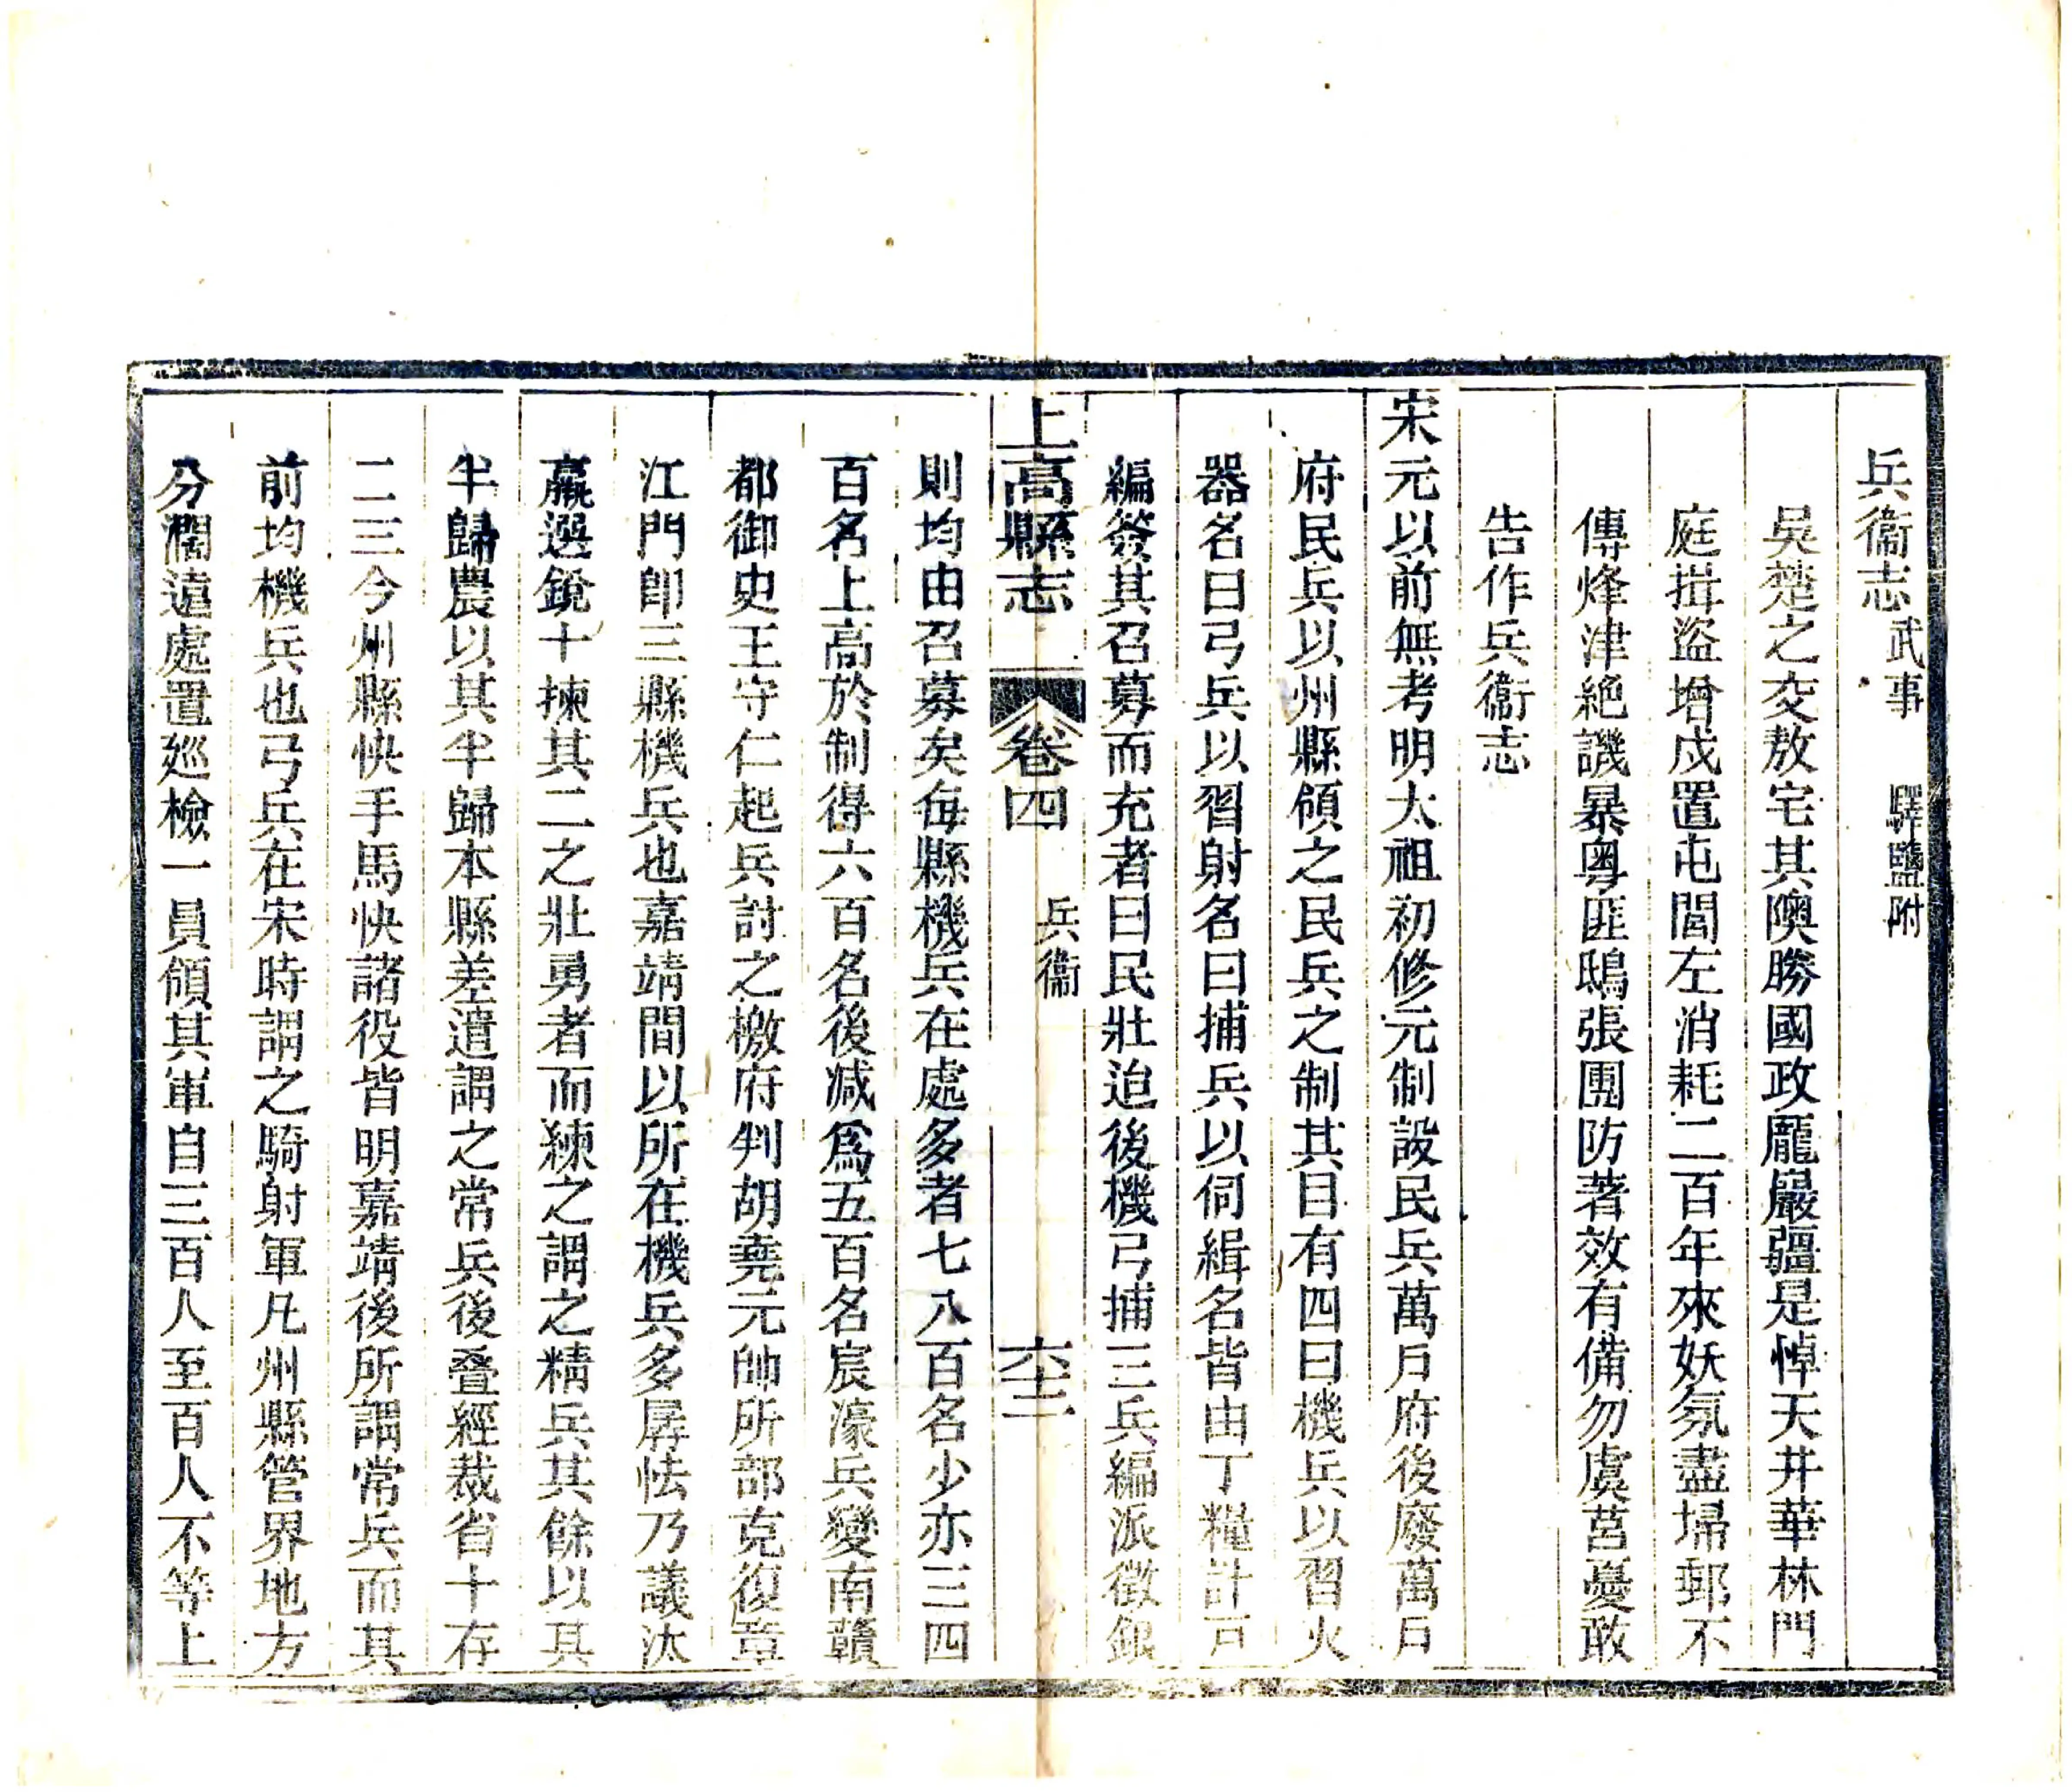 兵衞志 武事 驛鹽附
吳楚之交敖宅其隩勝國政龐嚴疆是悼天井華林門
庭揖盜增戍置屯閭左消耗二百年來妖氛盡埽郵不
傳烽津絕譏暴粵匪鴟張團防著效有備勿虞莒憂敢
告作兵衞志
宋元以前無考明太祖初修元制設民兵萬戸府後廢萬戸
府民兵以州縣領之民兵之制其目有四曰機兵以習火
器名曰弓兵以習射名曰捕兵以伺緝名皆由丁糧計戸
編簽其召募而充者曰民壯迨後機弓捕三兵編派徵銀
上高縣志 卷四 兵衞 六十二
則均由召募矣每縣機兵在處多者七八百名少亦三四
百名上高於制得六百名後减爲五百名宸濠兵變南贛
都御史王守仁起兵討之檄府判胡堯元帥所部克復章
江門卽三縣機兵也嘉靖間以所在機兵多孱怯乃議汰
羸選銳十揀其二之壯勇者而練之謂之精兵其餘以其
半歸農以其半歸本縣差遣謂之常兵後叠經裁省十存
二三今州縣快手馬快諸役皆明嘉靖後所謂常兵而其
前均機兵也弓兵在宋時謂之騎射軍凡州縣管界地方
分濶遠處置廵檢一員領其軍自三百人至百人不等上